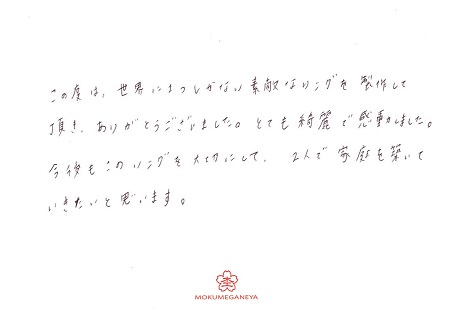 この度は、世界に1つしかない素敵なリングを製作して
頂き、ありがとうございました。とても綺麗で感動しました。
今後もこのリングを大切にして、2人で家庭を築いて
いきたいと思います。
MOKUMEGANEYA